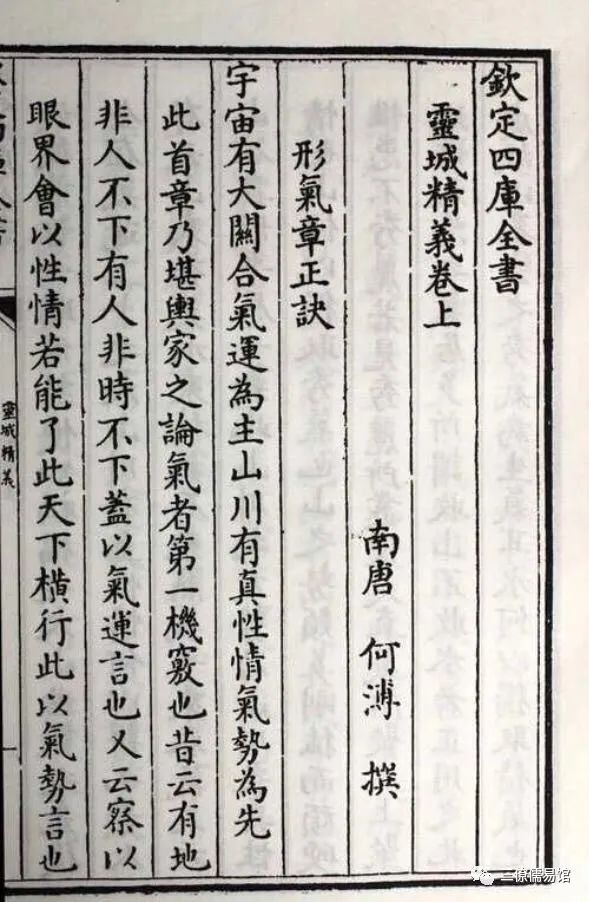 欽定四庫全書
靈城精義卷上
南唐 何溥 撰
形氣章正訣
宇宙有大關合氣運為主山川有真性情氣勢為先
此首章乃堪輿家之論氣者第一機竅也昔云有地
非人不下有人非時不下蓋以氣運言也又云察以
眼界會以性情若能了此天下橫行此以氣勢言也
靈城精義
一
三僚儒易馆